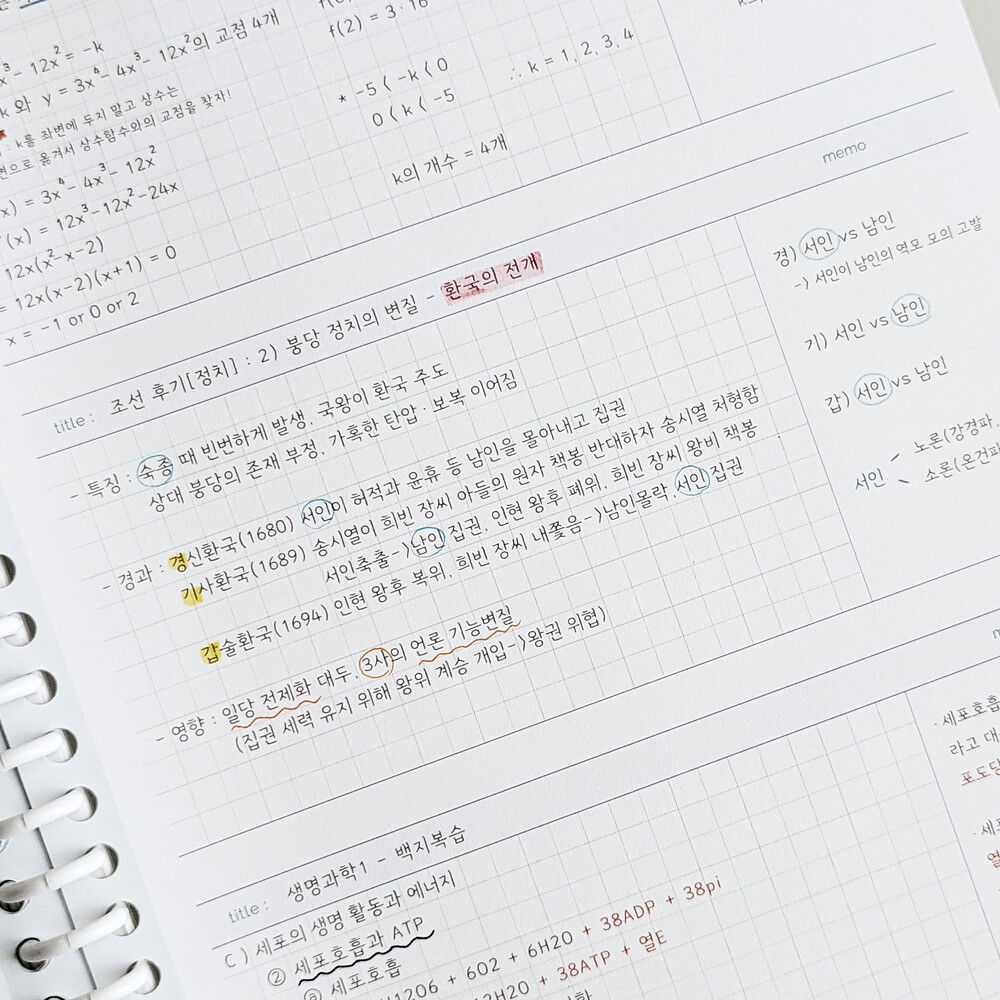 x³ - 12x² = -k
k 와 y = 3x⁴ - 4x³ - 12x²의 교점 4개
k를 좌변에 두지 말고 상수는
변으로 옮겨서 상수함수와의 교점을 찾자!
(x) = 3x⁴ - 4x³ - 12x²
'(x) = 12x³ - 12x² - 24x
12x(x² - x - 2)
= 12x(x-2)(x+1) = 0
x = -1 or 0 or 2
f(2) = 3·16
* -5 < -k < 0
0 < k < -5
∴ k = 1, 2, 3, 4
k의 개수 = 4개
memo
title : 조선 후기[정치] : 2) 붕당 정치의 변질 - 환국의 전개
- 특징 : 숙종 때 빈번하게 발생. 국왕이 환국 주도
상대 붕당의 존재 부정, 가혹한 탄압·보복 이어짐
- 경과 : 경신환국(1680) 서인이 허적과 윤휴 등 남인을 몰아내고 집권
기사환국(1689) 송시열이 희빈 장씨 아들의 원자 책봉 반대하자 송시열 처형함
서인축출->남인 집권, 인현 왕후 폐위, 희빈 장씨 왕비 책봉
갑술환국(1694) 인현 왕후 복위, 희빈 장씨 내쫓음->남인몰락, 서인 집권
- 영향 : 일당 전제화 대두, 3사의 언론 기능변질
(집권 세력 유지 위해 왕위 계승 개입->왕권 위협)
경) 서인 vs 남인
-> 서인이 남인의 역모 모의 고발
기) 서인 vs 남인
갑) 서인 vs 남인
노론(강경파,
서인
소론(온건파
title : 생명과학1 - 백지복습
C ) 세포의 생명 활동과 에너지
② 세포호흡과 ATP
③ 세포호흡
H1206 + 6O2 + 6H2O + 38ADP + 38pi
12H2O + 38ATP + 열E
· 세포호흡
라고 대
포도당
· 세포
열